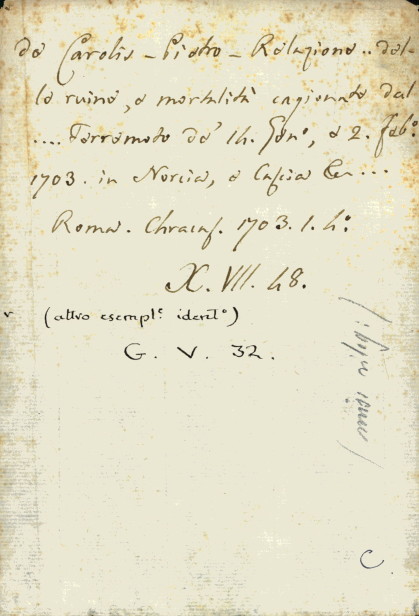 de Carolis - Pietro - Relazione .. del-
le ruine, e mortalità cagionate dal
.... Terremoto de' 14. Genº, e 2. Febº
1703. in Norcia, e Cascia &c...
Roma. Chracas. 1703. 1. 4º
X. VII. 48.
(altro esemplº identº)
G. V. 32.
C